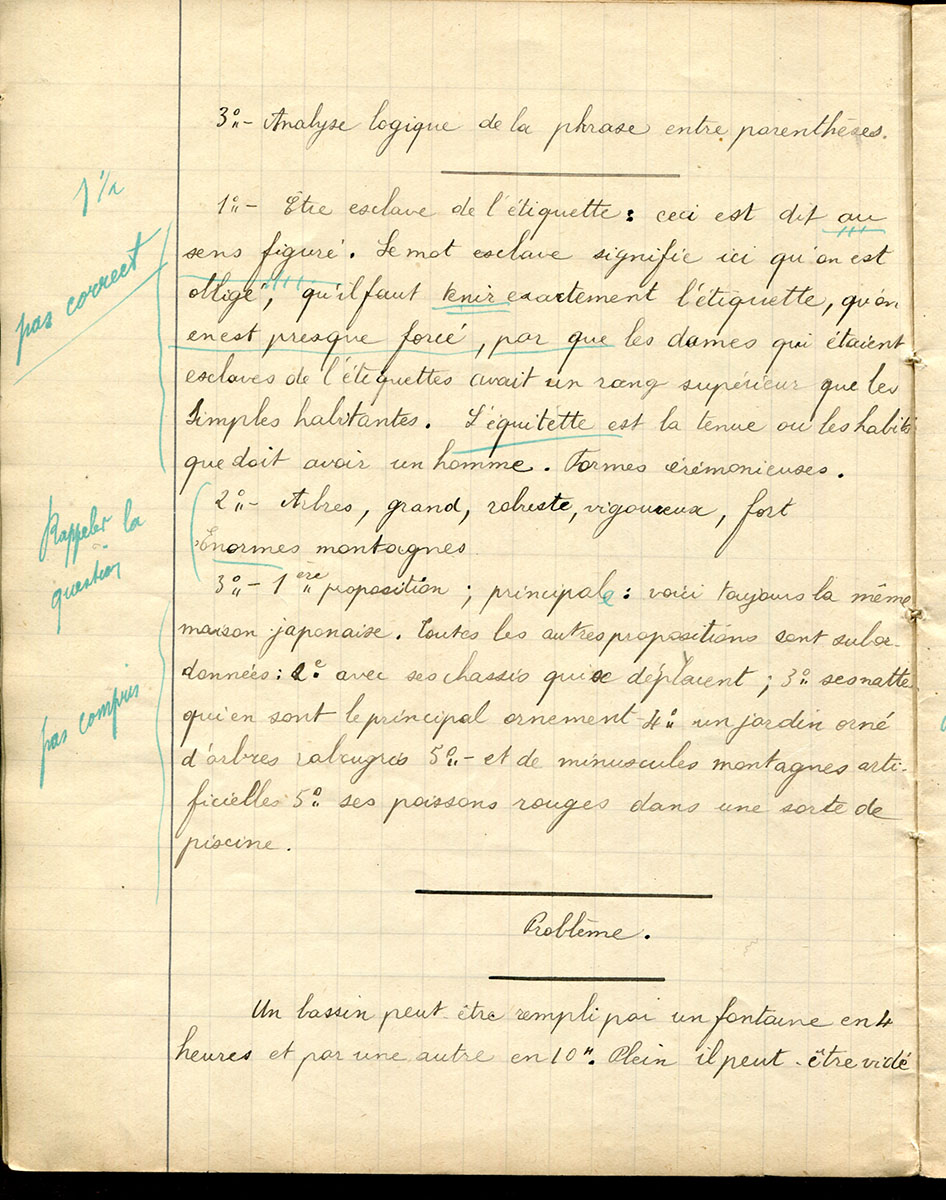 3° - Analyse logique de la phrase entre parenthèses.
1 1/2
1° - Etre esclave de l'étiquette : ceci est dit au
sens figuré. Le mot esclave signifie ici qu'on est
pas correct
obligé, qu'il faut tenir exactement l'étiquette, qu'on
en est presque forcé, par que les dames qui étaient
esclaves de l'étiquettes avait un rang supérieur que les
simples habitantes. L'équitette est la tenue ou les habits
que doit avoir un homme. Formes cérémonieuses.
2° - Arbres, grand, robuste, vigoureux, fort
Rappeler la
question
Enormes montagnes
3° - 1ère proposition ; principale : voici toujours la même
maison japonaise. Toutes les autres propositions sont subor-
données : 2° avec ses chassis qui se déplacent ; 3° ses nattes
pas compris
qui en sont le principal ornement - 4° un jardin orné
d'arbres rabrugris 5° - et de minuscules montagnes arti-
ficielles 5° ses poissons rouges dans une sorte de
piscine.
Problème.
Un bassin peut être rempli par un fontaine en 4
heures et par une autre en 10h. Plein il peut être vidé